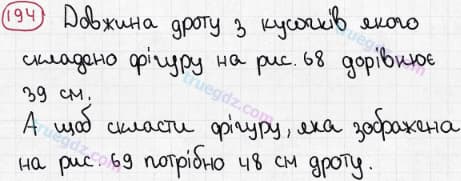 194 Довжина дроту з кусочків якого
складено фігуру на рис. 68 дорівнює
39 см.
А щоб скласти фігуру, яка зображена
на рис. 69 потрібно 48 см дроту.
truegdz.com
truegdz.com
truegdz.com